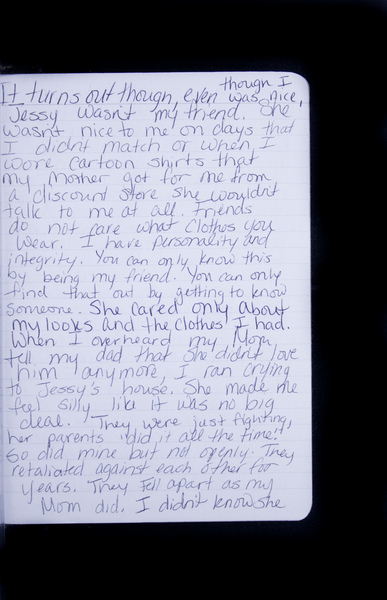 though I
It turns out though, even was nice,
Jessy wasn't my friend. She
wasn't nice to me on days that
I didnt match or when I
wore cartoon shirts that
my mother got for me from
a discount store she wouldn't
talk to me at all. Friends
do not care what clothes you
wear. I have personality and
integrity. You can only know this
by being my friend. You can only
find that out by getting to know
someone. She cared only about
my looks and the clothes I had.
When I overheard my Mom
tell my dad that she didn't love
him anymore, I ran crying
to Jessy's house. She made me
feel silly like it was no big
deal. They were just fighting,
her parents "did it all the time."
So did mine but not openly. They
retaliated against each other for
years. They fell apart as my
Mom did. I didn't know she